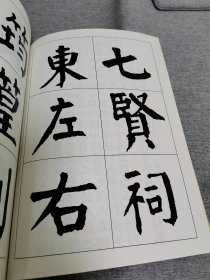 七賢祠
東左右